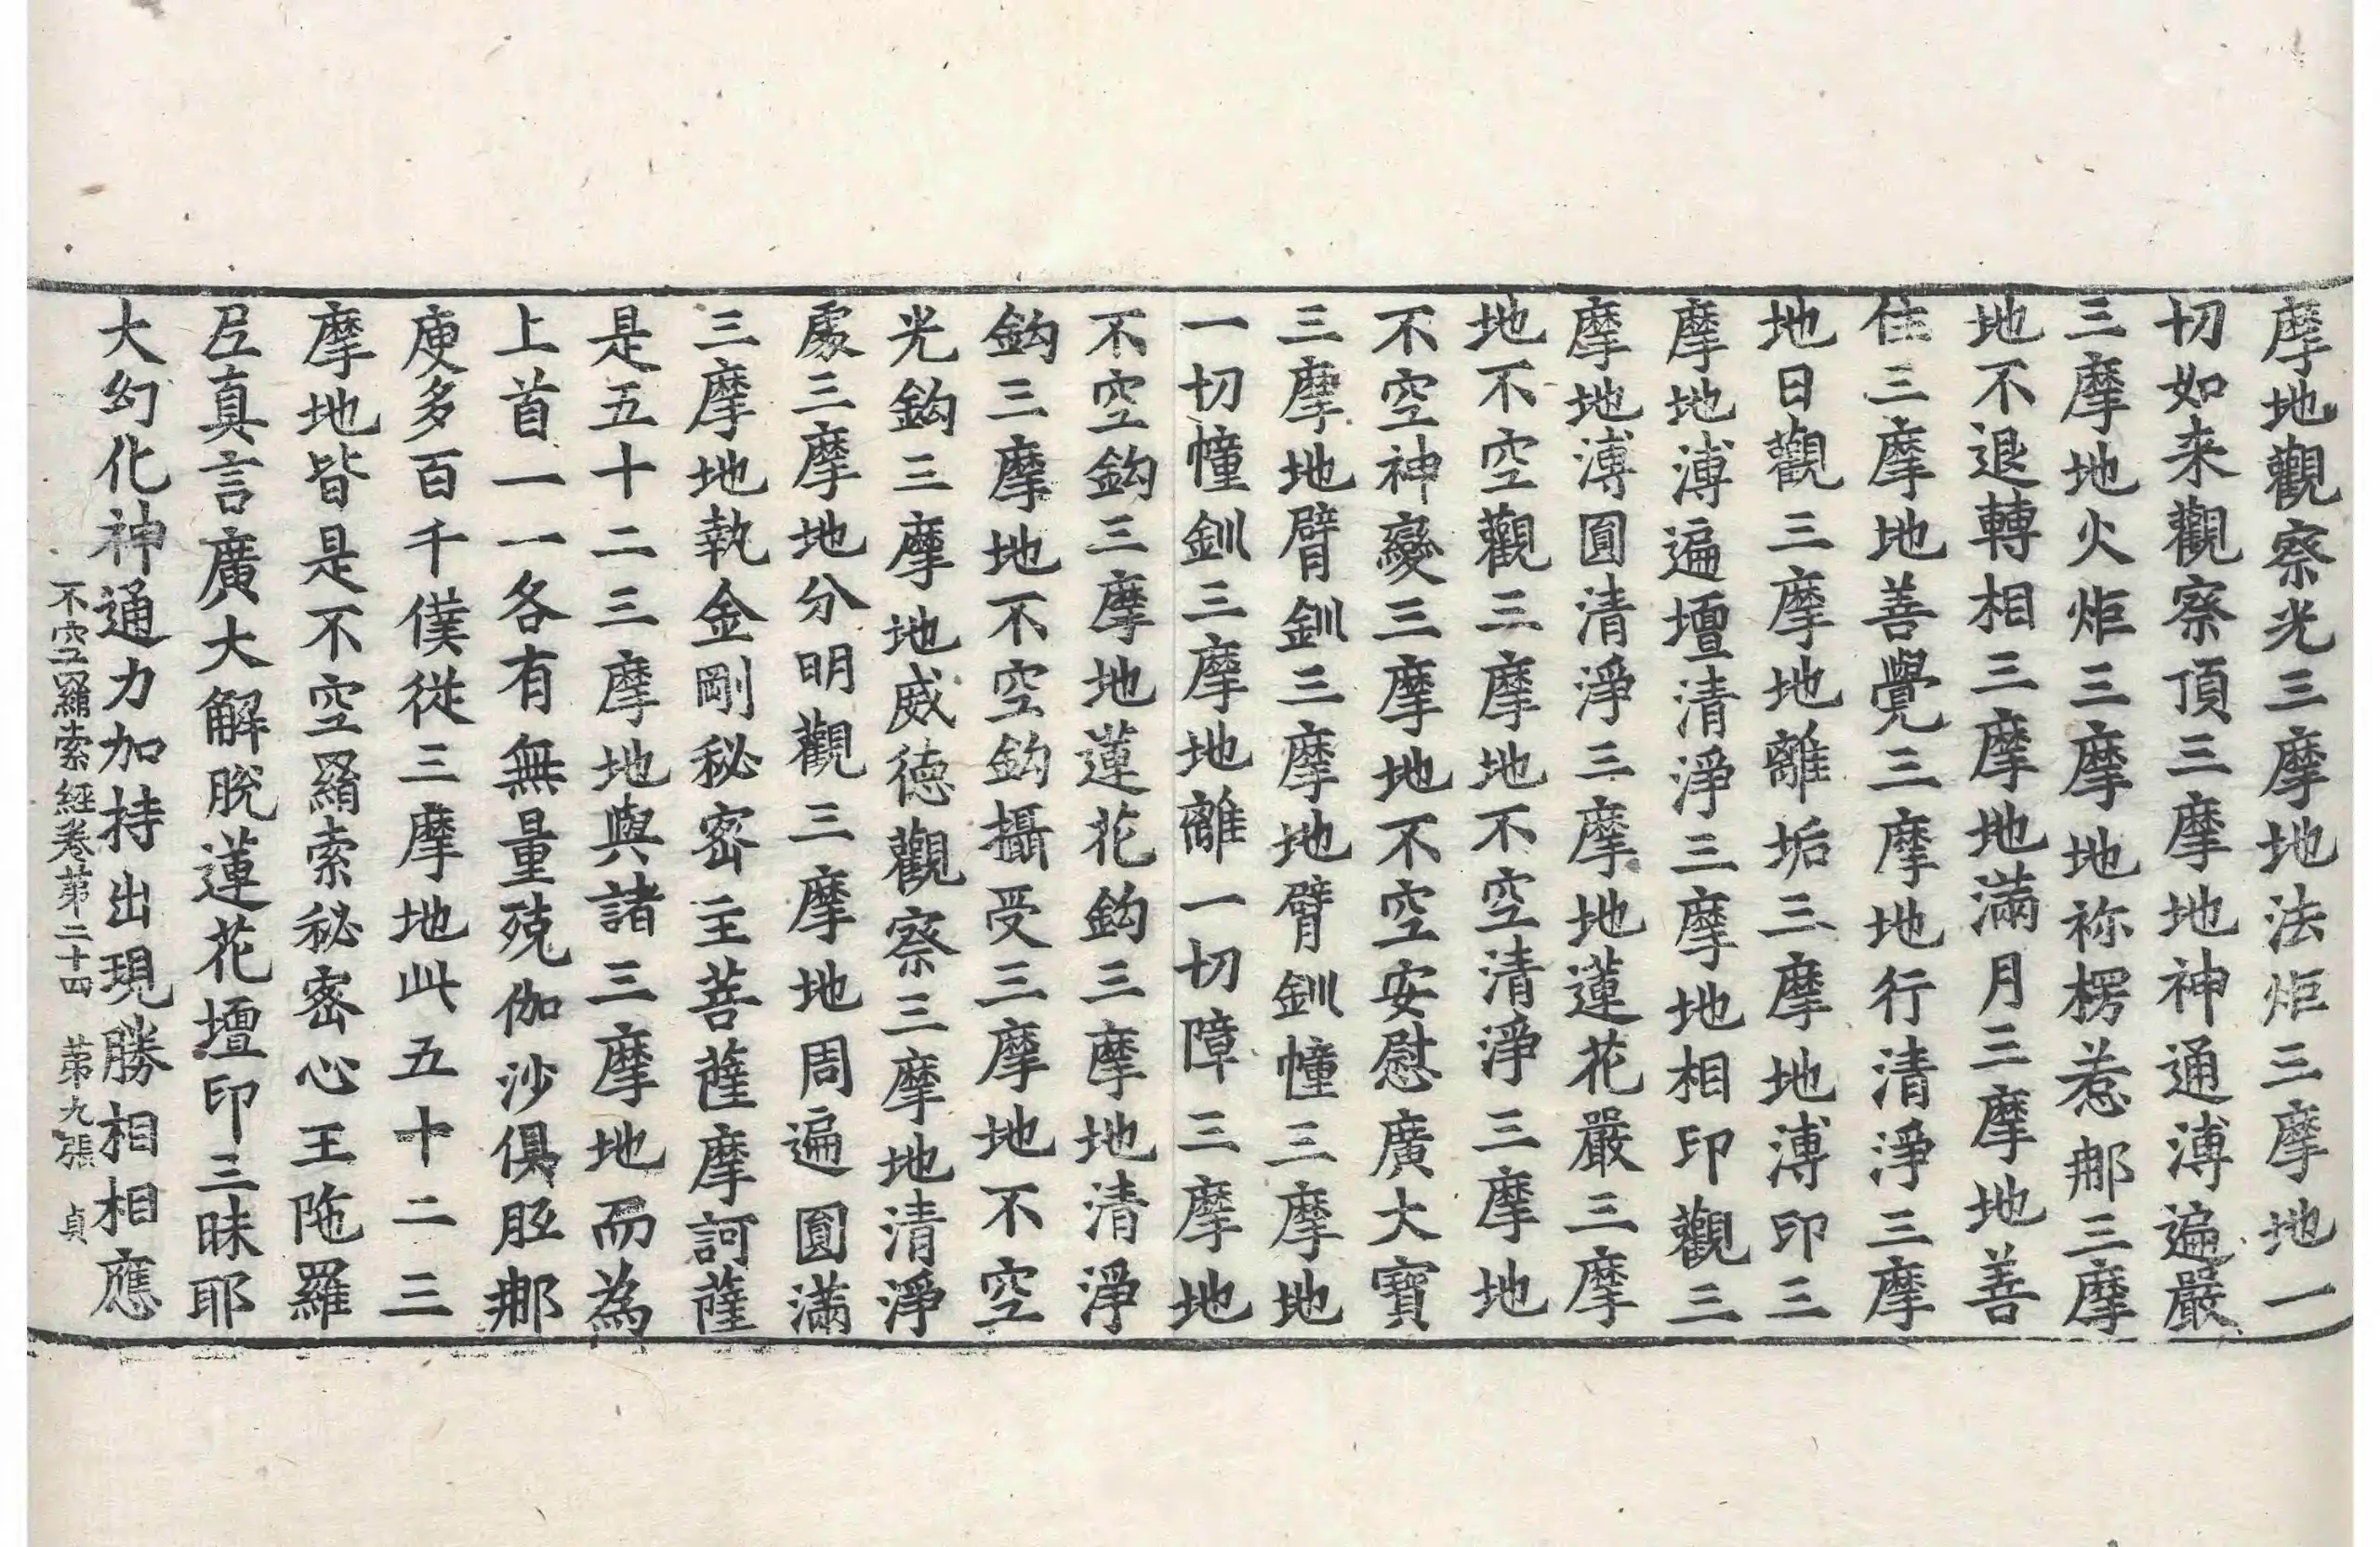 摩地觀察光三摩地法炬三摩地一
切如来觀察頂三摩地神通溥遍嚴
三摩地火炬三摩地祢楞惹那三摩
地不退轉相三摩地滿月三摩地善
住三摩地善覺三摩地行清淨三摩
地日觀三摩地離垢三摩地溥印三
摩地溥遍壇清淨三摩地相印觀三
摩地溥圓清淨三摩地蓮花嚴三摩
地不空觀三摩地不空清淨三摩地
不空神變三摩地不空安慰廣大寶
三摩地臂釧三摩地臂釧幢三摩地
一切幢釧三摩地離一切障三摩地
不空鈎三摩地蓮花鈎三摩地清淨
鈎三摩地不空鈎攝受三摩地不空
光鈎三摩地威德觀察三摩地清淨
處三摩地分明觀三摩地周遍圓滿
三摩地執金剛秘密主菩薩摩訶薩
是五十二三摩地與諸三摩地而為
上首一一各有無量殑伽沙俱胝那
庾多百千僕從三摩地此五十二三
摩地皆是不空羂索秘密心王陁羅
尼真言廣大解脫蓮花壇印三昧耶
大幻化神通力加持出現勝相相應
不空羂索經卷第二十四 第九張 貞